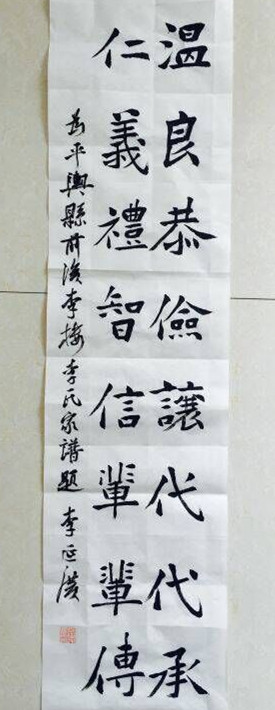 溫良恭儉讓代代承
仁義禮智信輩輩傳
為平輿縣前後李樓李氏家譜題 李延